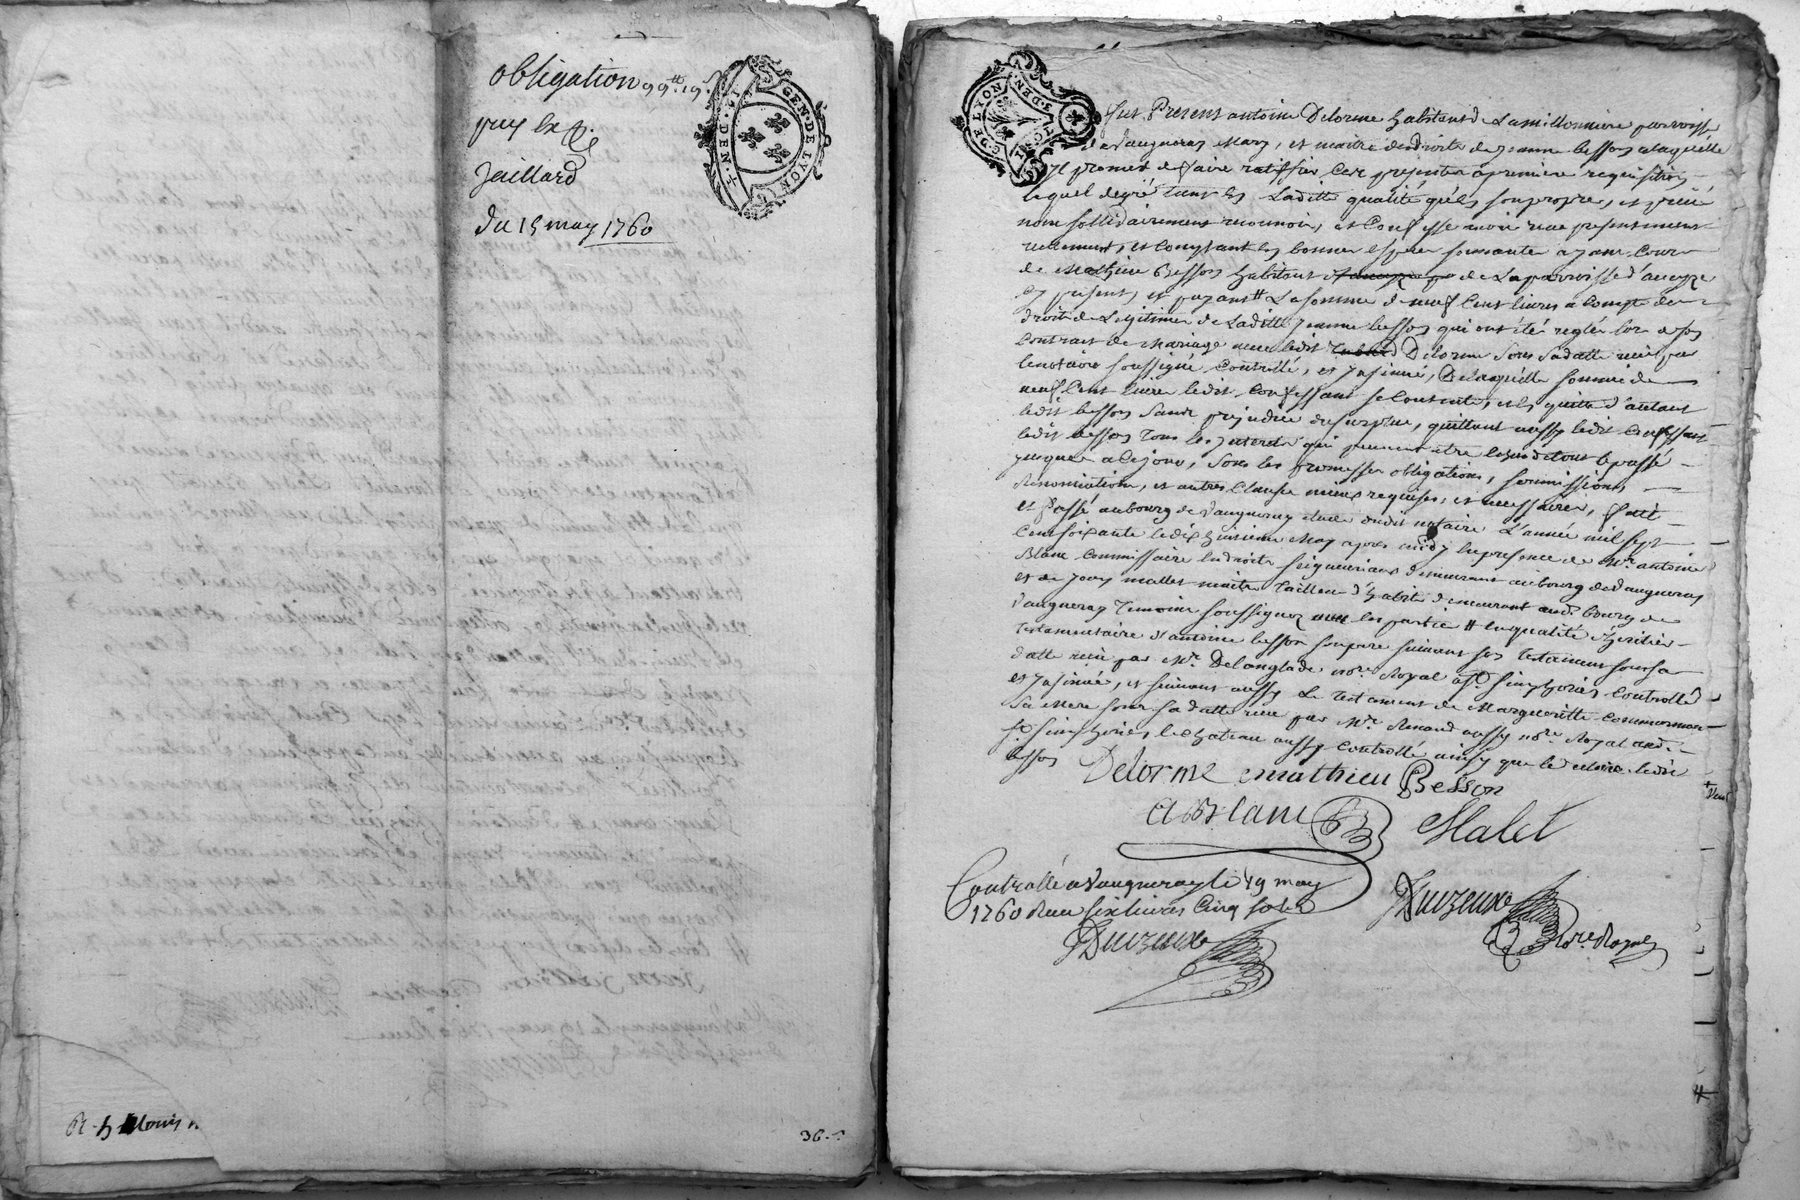 obligation 99tt 19s
puy et
Jaillard
du 15 may 1760
GEN. DE LYON
DEN.
36
G. DE LYON
DEN.
fut Present antoine Delorme habitant de Lamillonniere parroisse
de Vaugneray Mary, et maitre des droits de Jeanne besson a laquelle
Il promet de faire ratiffier ces presentes a premiere requisition
lequel de gré tant en Laditte qualité qu'en son propre, et privé
nom sollidairement reconnoit, et Confesse avoir reçu presentement
reellement, et Comptant en bonnes espesses sonnantes ayant Cour
de Mathieu Besson habitant de La parroisse d'aveyze
Cy present, et payant # La somme de neuf Cent livres a Compte des
droits de Legitimes de Laditte Jeanne besson qui ont été reglés lors de son
Contrait de Mariage avec ledit Delorme Sous Sa datte reçu par
le notaire soussigné Controllé, et Insinué, De laquelle somme de
neuf Cent livres ledit Confessant se Contente, et en quitte d'autant
ledit besson Sans prejudice du surplus, quittant aussy ledit Confessant
ledit besson Tous les Interets qui peuvent etre echus de tout le passé
jusques a Ce jour, Sous les promesses obligations, soumissions,
Renonciations, et autres Clauses mieux requises, et necessaires, fait
et Passé au bourg de Vaugneray etude dudit notaire L'année mil sept
Cent soixante le dix huitieme May apres midy En presence de Mre antoine
Blanc Commissaire en droits seigneuriaux demeurant au bourg de Vaugneray
et de Jean mallet maitre Tailleur d'habits demeurant audt bourg de
Vaugneray Temoins soussignez avec les parties # en qualité d'heritier
Testamentaire d'antoine besson son pere suivant son Testament sous sa
datte reçu par Mre Delanglade nore Royal a St simphorien Controllé
et Insinué, et suivant aussy Le testament de Margueritte Commarmon
Sa Mere sous sa datte reçu par Mre Renaud aussy nore Royal audt
St simphorien le Chateau aussy Controllé ainsy que le declare ledit
besson
Delorme mathieu Besson
A Blanc Malet
Controllé a Vaugneray le 19 may
1760 Reçu six livres Cinq sols
Duvzeuxe
Duvzeuxe
Nore Royal